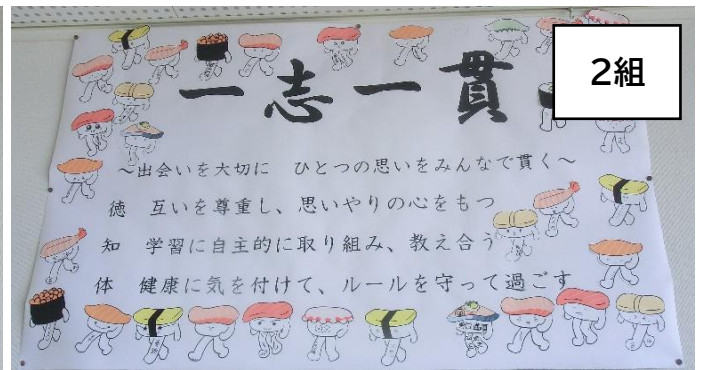 2組
一志一貫
～出会いを大切に　ひとつの思いをみんなで貫く～
徳　互いを尊重し、思いやりの心をもつ
知　学習に自主的に取り組み、教え合う
体　健康に気を付けて、ルールを守って過ごす